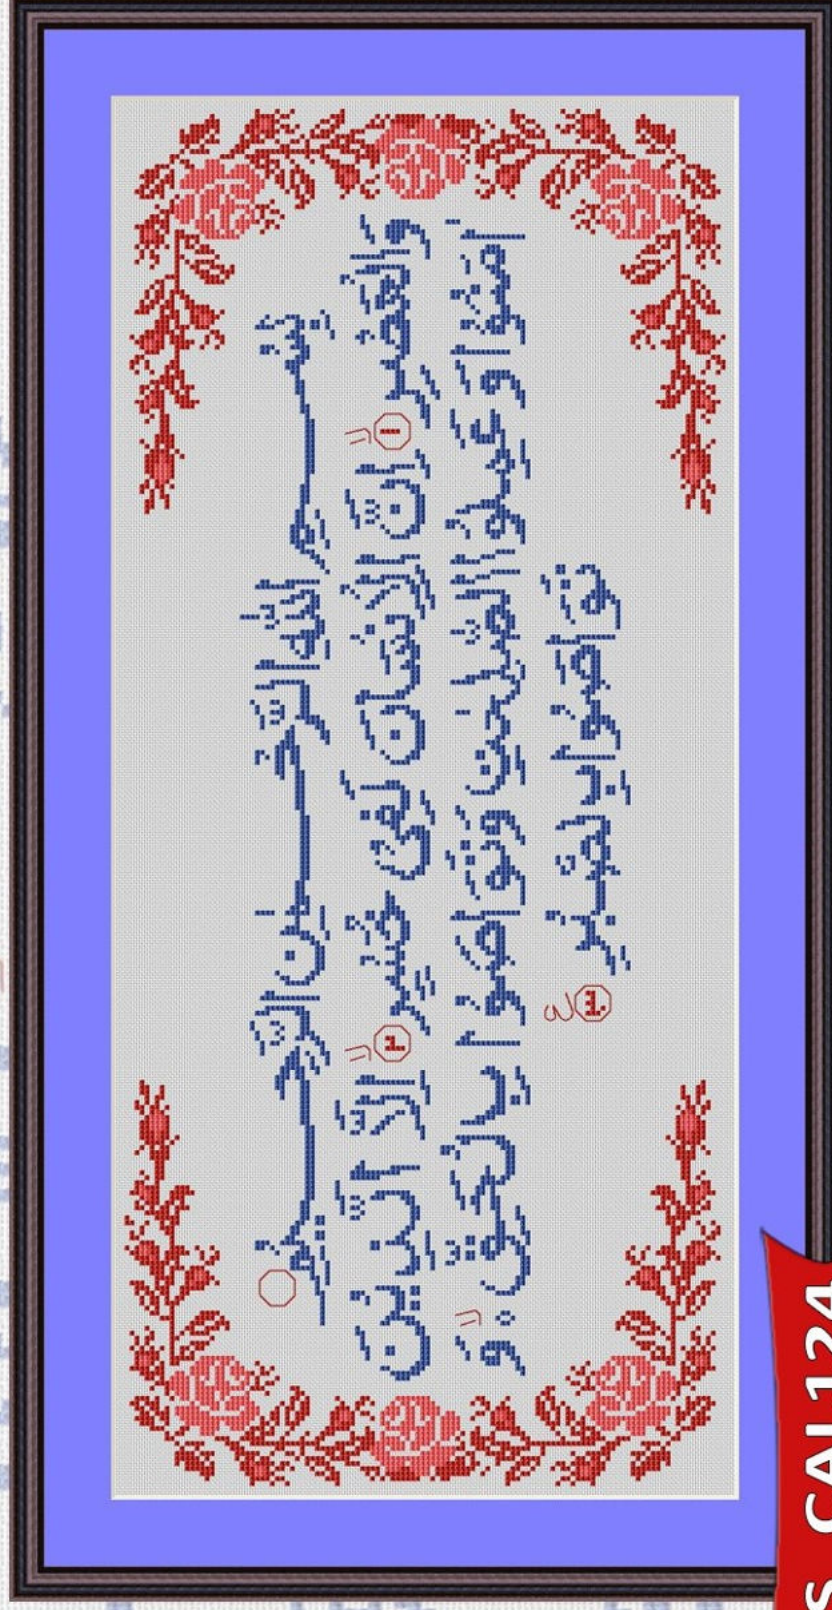 بِسْمِ اللّٰهِ الرَّحْمٰنِ الرَّحِيْمِ
وَالْعَصْرِ ۙ ١ اِنَّ الْاِنْسَانَ لَفِيْ خُسْرٍ ۙ ٢ اِلَّا الَّذِيْنَ
اٰمَنُوْا وَعَمِلُوا الصّٰلِحٰتِ وَتَوَاصَوْا بِالْحَقِّ ۙ۬ وَ
تَوَاصَوْا بِالصَّبْرِ ٣
S CAL124